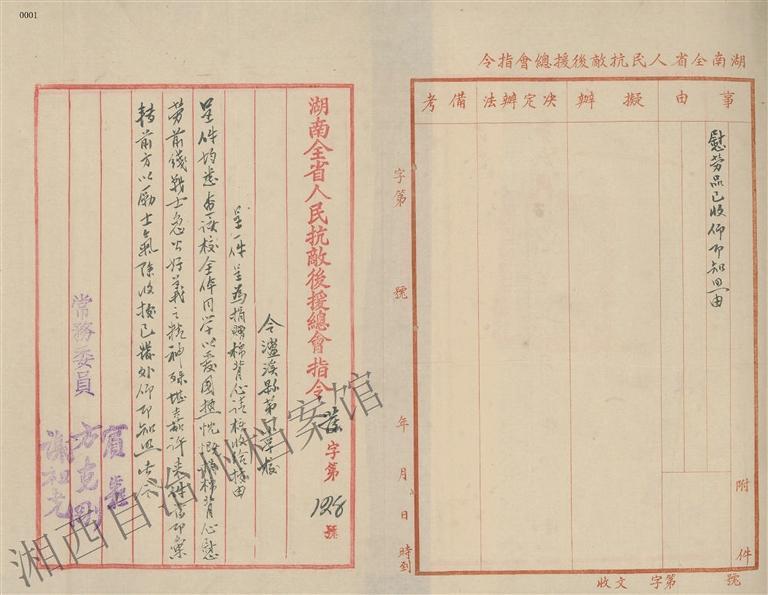 0001
湖南全省人民抗敵後援總會指令
事由
擬辦
決定辦法
備考
慰勞品已收仰即知照由
附件
字第 號
年 月 日 時到
收文 字第 號
湖南全省人民抗敵後援總會指令
字第128號
令瀘溪縣
呈一件 呈為捐贈棉背心請核收給據由
呈件均悉查該校全体同學以愛國熱忱慨捐棉背心慰
勞前綫戰士急公好義之精神殊堪嘉許来件當即彙
轉前方以勵士氣除收據已 外仰即知照此令
常務委員
方克剛
謝祖堯
湘西自治州档案馆